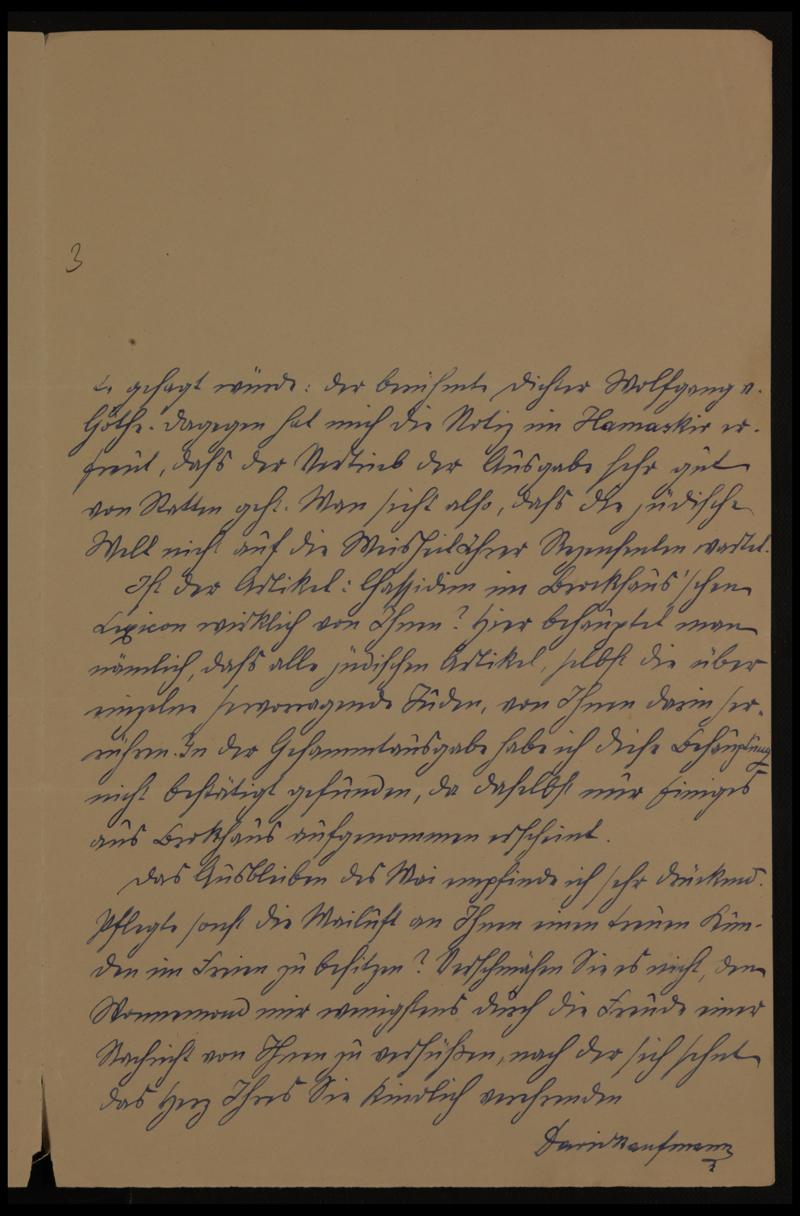 3
te gesagt würde: der berühmte Dichter Wolfgang v.
Göthe. Dagegen hat mich die Notiz im Hamaskir er-
freut, daſs der Vertrieb der Ausgabe sehr gut
von Statten geht. Man sieht also, daſs die jüdische
Welt nicht auf die Recensenten wartet.
Ist der Artikel: Chassidim im Brockhaus'schen
Lexicon wirklich von Ihnen? Hier behauptet man
nämlich, daſs alle jüdischen Artikel, selbst die über
einzelne hervorragende Juden, von Ihnen darin her-
rühren. In der Gesammtausgabe habe ich diese Behauptung
nicht bestätigt gefunden, da daselbst nur Einiges
aus Brockhaus aufgenommen erscheint.
Das Ausbleiben des Mai empfinde ich sehr drückend.
Pflegte sonst die Mailuft an Ihnen einen treuen Kun-
den im Freien zu besitzen? Verschmähen Sie es nicht, den
Wonnemond mir wenigstens durch die Freude einer
Nachricht von Ihnen zu versüßen, nach der sich sehnt
das Herz Ihres Sie kindlich verehrenden
David Kaufmann